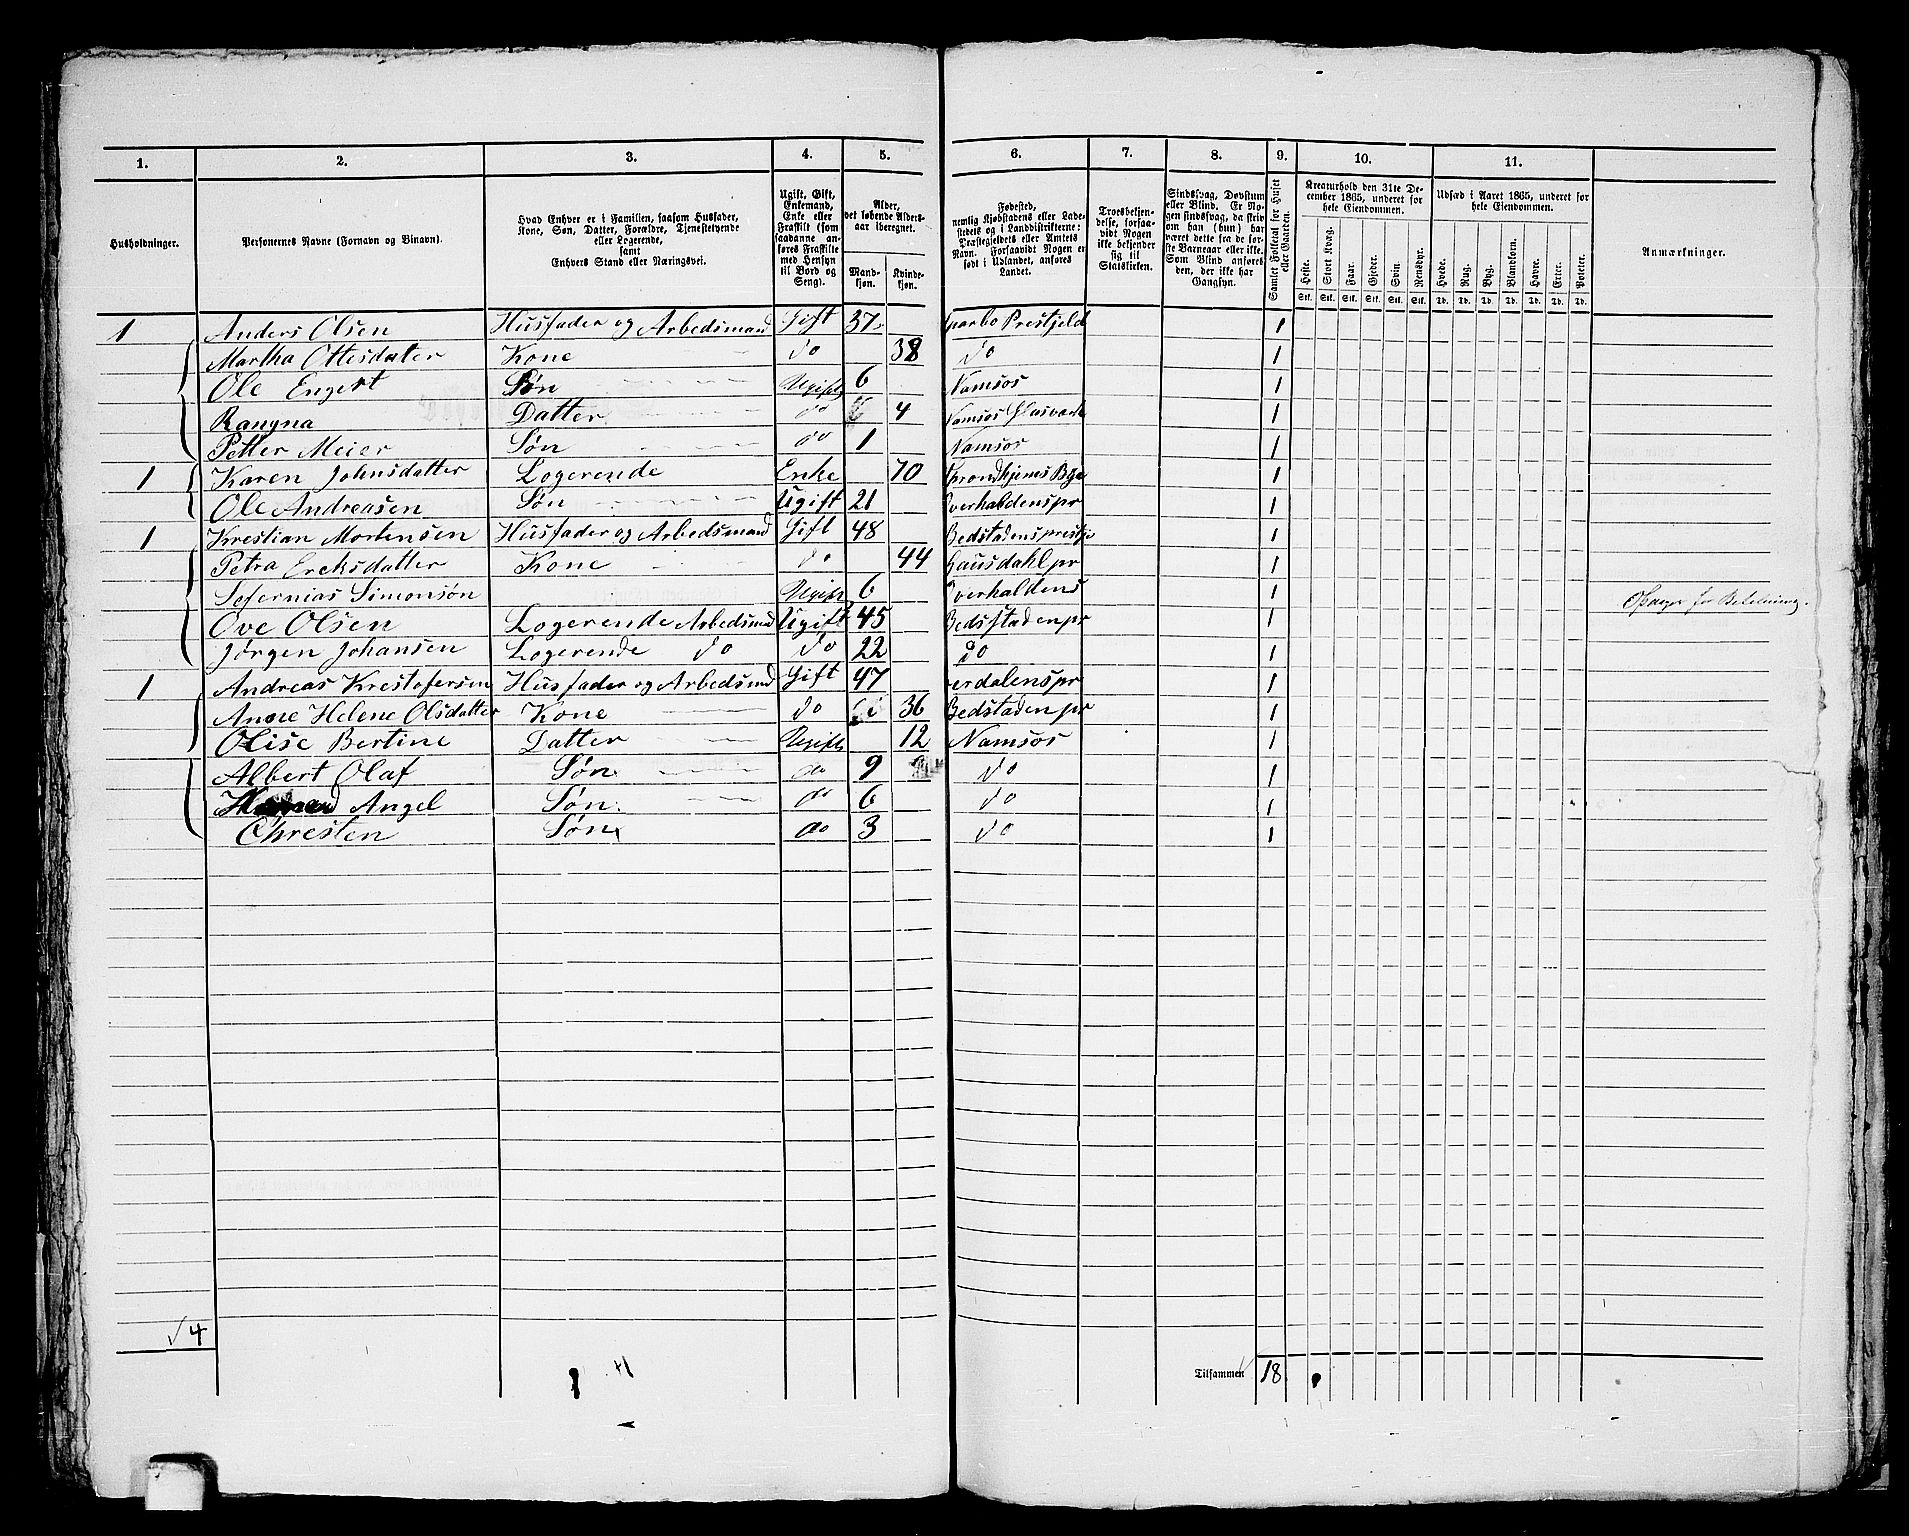 1. 2. 3. 4. 5. 6. 7. 8. 9. 10. 11.
Husholdninger.
Personernes Navne (Fornavn og Binavn).
Hvad Enhver er i Familien, saasom Husfader, Kone, Søn, Datter, Forældre, Tjenestetyende eller Logerende, samt Enhvers Stand eller Næringsvei.
Ugift, Gift, Enkemand, Enke eller Fraskilt (som saadanne anføres Fraskilte med Hensyn til Bord og Seng).
Alder, det løbende Aldersaar iberegnet.
Mandkjøn. Kvindekjøn.
Fødested, nemlig Kjøbstadens eller Ladestedets og i Landdistrikterne: Præstegjeldets eller Amtets Navn. Forsaavidt Nogen er født i Udlandet, anføres Landet.
Troesbekjendelse, forsaavidt Nogen ikke bekjender sig til Statskirken.
Sindssvag, Døvstum eller Blind. Er Nogen sindssvag, da skriv om han (hun) har været dette fra de første Barneaar eller ikke. Som Blind anføres den, der ikke har Gangsyn.
Samlet Folketal for Huset eller Gaarden.
Kreaturhold den 31te December 1865, underet for hele Eiendommen.
Heste. Stort Kvæg. Faar. Gjeder. Svin. Rensdyr.
Stk. Stk. Stk. Stk. Stk. Stk.
Udsæd i Aaret 1865, underet for hele Eiendommen.
Hvede. Rug. Byg. Blandkorn. Havre. Erter. Poteter.
Td. Td. Td. Td. Td. Td. Td.
Anmærkninger.
1 Anders Olsen Husfader og Arbedsmand Gift 37 Sparbo Prestjeld 1
Martha Ottesdatter Kone do 38 do 1
Ole Engert Søn Ugift 6 Namsos 1
Rangna Datter do 4 Namsos 1
Petter Meier Søn do 1 Namsos 1
1 Karen Johnsdatter Logerende Enke 70 Trondhjems Bye 1
Ole Andreasen Søn Ugift 21 Overhaldenspr 1
1 Krestian Mortensen Husfader og Arbedsmand Gift 48 Bedstadensprestje 1
Petra Ereksdatter Kone do 44 Gausdahl pr 1
Sefernias Simonsøn Ugift 6 Overhaldens 1
Ove Olsen Logerende Arbedsmad Ugift 45 Bedsstaden pr 1
Jørgen Johansen Logerende do do 22 do 1
1 Andreas Krestofersen Husfader og Arbedsmd Gift 47 erdalenspr 1
Anne Helene Olsdatter Kone do 36 Bedstaden pr 1
Olise Bertine Datter Ugift 12 Namsos 1
Albert Olaf Søn do 9 do 1
Angel Søn do 6 do 1
Chresten Søn do 3 do 1
4
Tilsammen 18